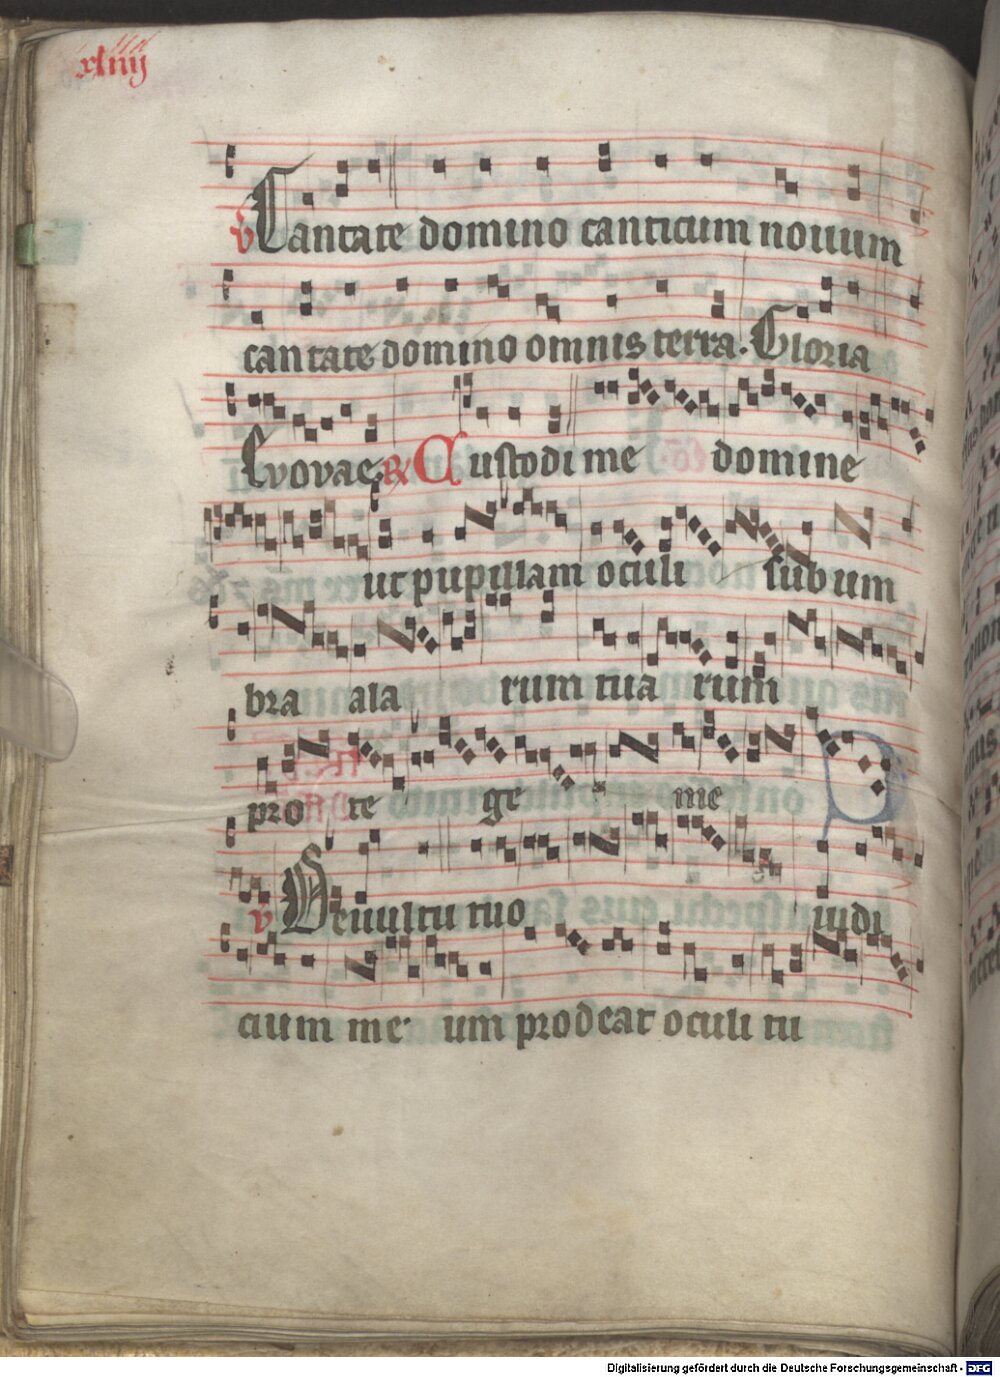 xliiij
v Cantate domino canticum nouum
cantate domino omnis terra. Gloria
Evovae R Custodi me domine
ut pupillam oculi sub um
bra ala rum tua rum
pro te ge me
v De uultu tuo iudi
cium me um prodeat oculi tu
Digitalisierung gefördert durch die Deutsche Forschungsgemeinschaft - DFG